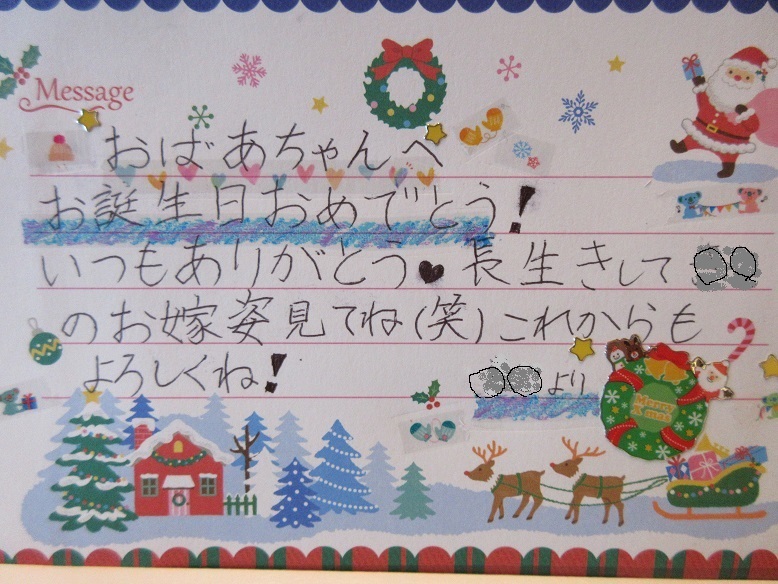 Message
おばあちゃんへ
お誕生日おめでとう!
いつもありがとう♥長生きして
のお嫁姿見てね(笑)これからも
よろしくね!
より
Merry
X'mas